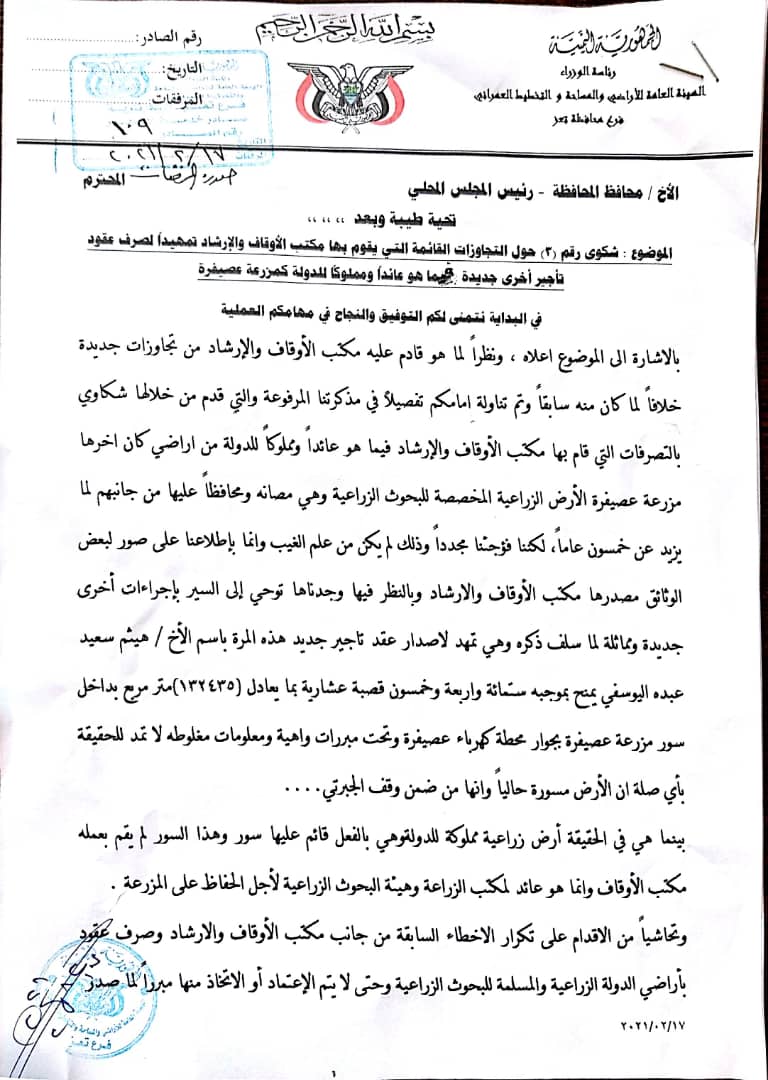 بسم الله الرحمن الرحيم
الجمهورية اليمنية
رئاسة الوزراء
الهيئة العامة للأراضي والمساحة و التخطيط العمراني
فرع محافظة تعز
رقم الصادر:
التاريخ:
المرفقات:
١٠٩
٢٠٢١/٢/١٧
الأخ / محافظ المحافظة - رئيس المجلس المحلي المحترم
تحية طيبة وبعد ،،، ،،، ،،،
الموضوع : شكوى رقم (٢) حول التجاوزات القائمة التي يقوم بها مكتب الأوقاف والإرشاد تمهيداً لصرف عقود
تأجير أخرى جديدة فيما هو عائداً ومملوكاً للدولة كمزرعة عصيفرة
في البداية نتمنى لكم التوفيق والنجاح في مهامكم العملية
بالاشارة الى الموضوع اعلاه ، ونظراً لما هو قادم عليه مكتب الأوقاف والإرشاد من تجاوزات جديدة
خلافاً لما كان منه سابقاً وتم تناولة امامكم تفصيلاً في مذكرتنا المرفوعة والتي قدم من خلالها شكاوي
بالتصرفات التي قام بها مكتب الأوقاف والإرشاد فيما هو عائداً ومملوكاً للدولة من اراضي كان اخرها
مزرعة عصيفرة الأرض الزراعية المخصصة للبحوث الزراعية وهي مصانه ومحافظاً عليها من جانبهم لما
يزيد عن خمسون عاماً، لكننا فوجئنا مجدداً وذلك لم يكن من علم الغيب وانما بإطلاعنا على صور لبعض
الوثائق مصدرها مكتب الأوقاف والارشاد وبالنظر فيها وجدناها توحي إلى السير بإجراءات أخرى
جديدة ومماثلة لما سلف ذكره وهي تمهد لاصدار عقد تاجير جديد هذه المرة باسم الأخ / هيثم سعيد
عبده اليوسفي يمنح بموجبه ستمائة واربعة وخمسون قصبة عشارية بما يعادل (١٣٢٤٣٥)متر مربع بداخل
سور مزرعة عصيفرة بجوار محطة كهرباء عصيفرة وتحت مبررات واهية ومعلومات مغلوطه لا تمد للحقيقة
بأي صلة ان الأرض مسورة حالياً وانها من ضمن وقف الجبرتي....
بينما هي في الحقيقة أرض زراعية مملوكة للدولةوهي بالفعل قائم عليها سور وهذا السور لم يقم بعمله
مكتب الأوقاف وانما هو عائد لمكتب الزراعة وهيئة البحوث الزراعية لأجل الحفاظ على المزرعة .
وتحاشياً من الاقدام على تكرار الاخطاء السابقة من جانب مكتب الأوقاف والارشاد وصرف عقود
بأراضي الدولة الزراعية والمسلمة للبحوث الزراعية وحتى لا يتم الإعتماد أو الاتخاذ منها مبرراً لما صدر
٢٠٢١/٠٢/١٧
فرع تعز
١